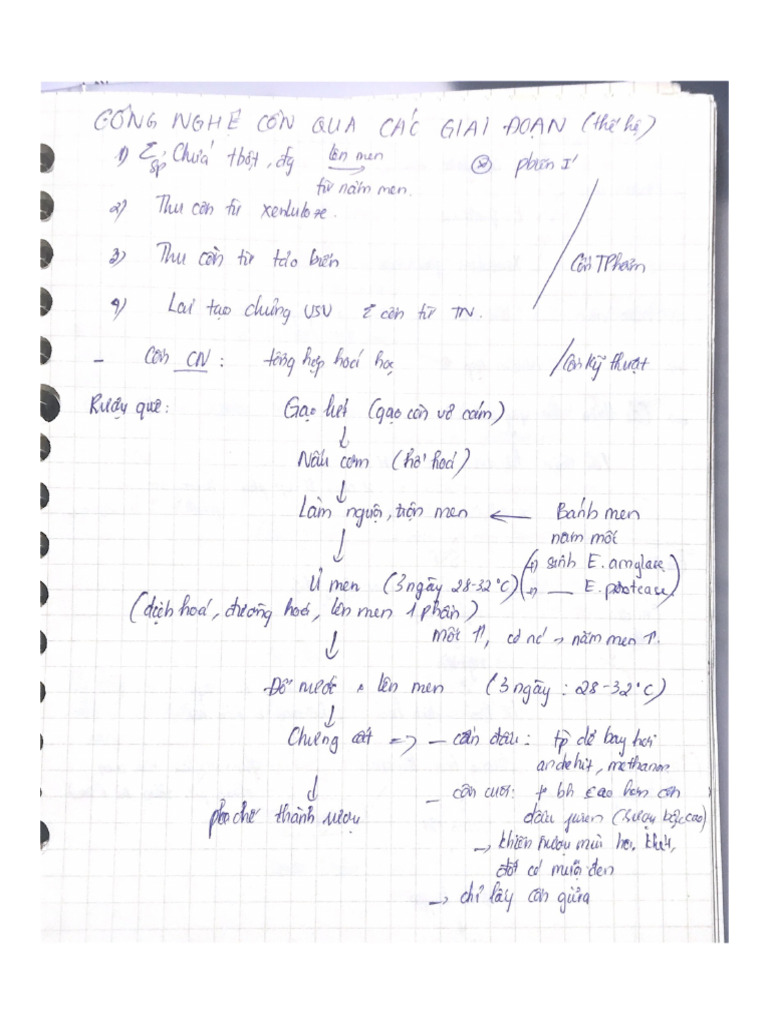 CÔNG NGHỆ CỒN QUA CÁC GIAI ĐOẠN (thế hệ)
1) Σ sp: Chứa tbột, đg lên men → từ nấm men. ⊗ phiên I'
2) Thu cồn từ xenlulose.
3) Thu cồn từ tảo biển
Cồn TPhẩm
4) Lai tạo chủng VSV cồn từ TN.
- Cồn CN: tổng hợp hoá học / Cồn kỹ thuật
Rượu quê: Gạo lứt (gạo còn vỏ cám)
↓
Nấu cơm (hồ hoá)
↓
Làm nguội, trộn men ← Bánh men
nấm mốc
↓
+) sinh E. amylase
Ủ men (3 ngày 28-32°C) +) __ E. protease
(dịch hoá, đường hoá, lên men 1 phần)
mốc ↑, có nc → nấm men ↑.
↓
Đổ nước, lên men (3 ngày: 28-32°C)
↓
Chưng cất => - cồn đầu: tp dễ bay hơi
andehit, methanon
↓
- cồn cuối: t° bh cao hơn cồn
pha chế thành rượu
đầu (rượu bậc cao)
→ khiến rượu mùi hơi khét,
đốt có muội đen
→ chỉ lấy cồn giữa